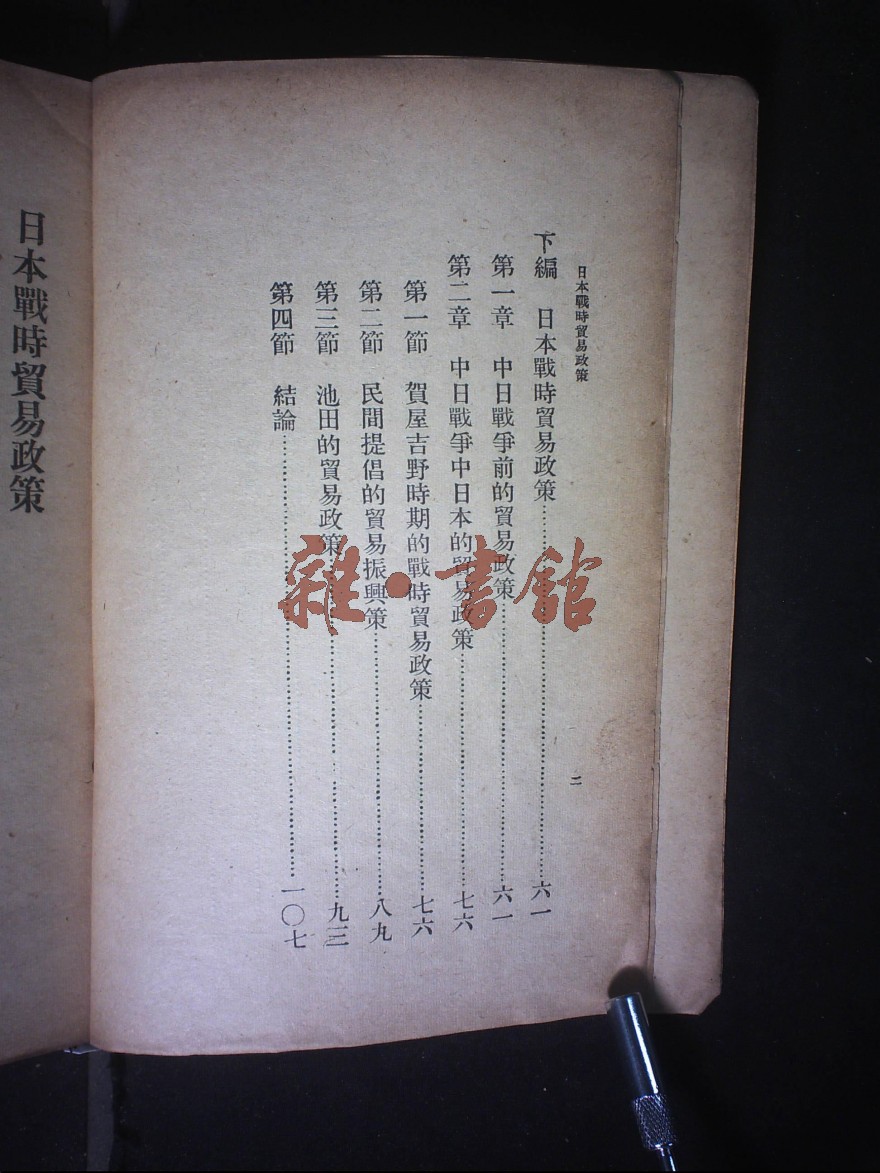 日本戰時貿易政策
二
下編 日本戰時貿易政策……六一
第一章 中日戰爭前的貿易政策……六一
第二章 中日戰爭中日本的貿易政策……七六
第一節 賀屋吉野時期的戰時貿易政策……七六
第二節 民間提倡的貿易振興策……八九
第三節 池田的貿易政策……九三
第四節 結論……一〇七
日本戰時貿易政策
雜·書館